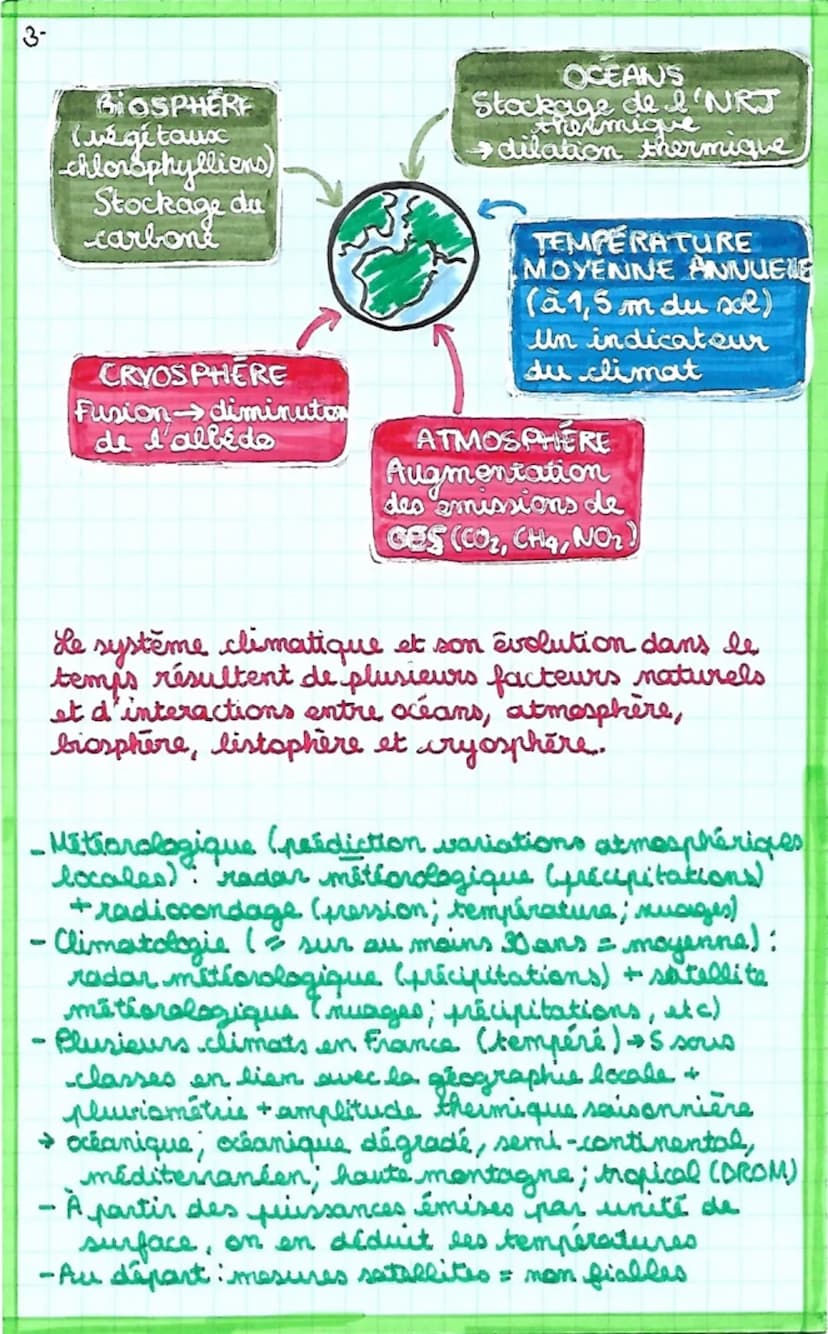 3-
BiOSPHÈRE
(végétaux
chlorophylliens)
Stockage du
carbone
OCÉANS
Stockage de l'NRJ
thermique
→ dilation thermique
TEMPÉRATURE
MOYENNE ANNUELLE
(à 1,5 m du sol)
Un indicateur
du climat
CRYOSPHÈRE
Fusion → diminution
de l'albédo
ATMOSPHÈRE
Augmentation
des émissions de
GES (CO2, CH4, NO2)
Le système climatique et son évolution dans le
temps résultent de plusieurs facteurs naturels
et d'interactions entre océans, atmosphère,
biosphère, listophère et cryosphère.
- Météorologique (prédiction variations atmosphériques
locales) : radar météorologique (précipitations)
+ radiosondage (pression; température; nuages)
- Climatologie (= sur au moins 30 ans = moyenne) :
radar météorologique (précipitations) + satellite
météorologique (nuages; précipitations, etc)
- Plusieurs climats en France (tempéré) → 5 sous
classes en lien avec la géographie locale +
pluviométrie + amplitude thermique saisonnière
→ océanique; océanique dégradé, semi-continental,
méditerranéen; haute montagne; tropical (DROM)
- À partir des puissances émises par unité de
surface, on en déduit les températures
- Au départ : mesures satellites = non fiables